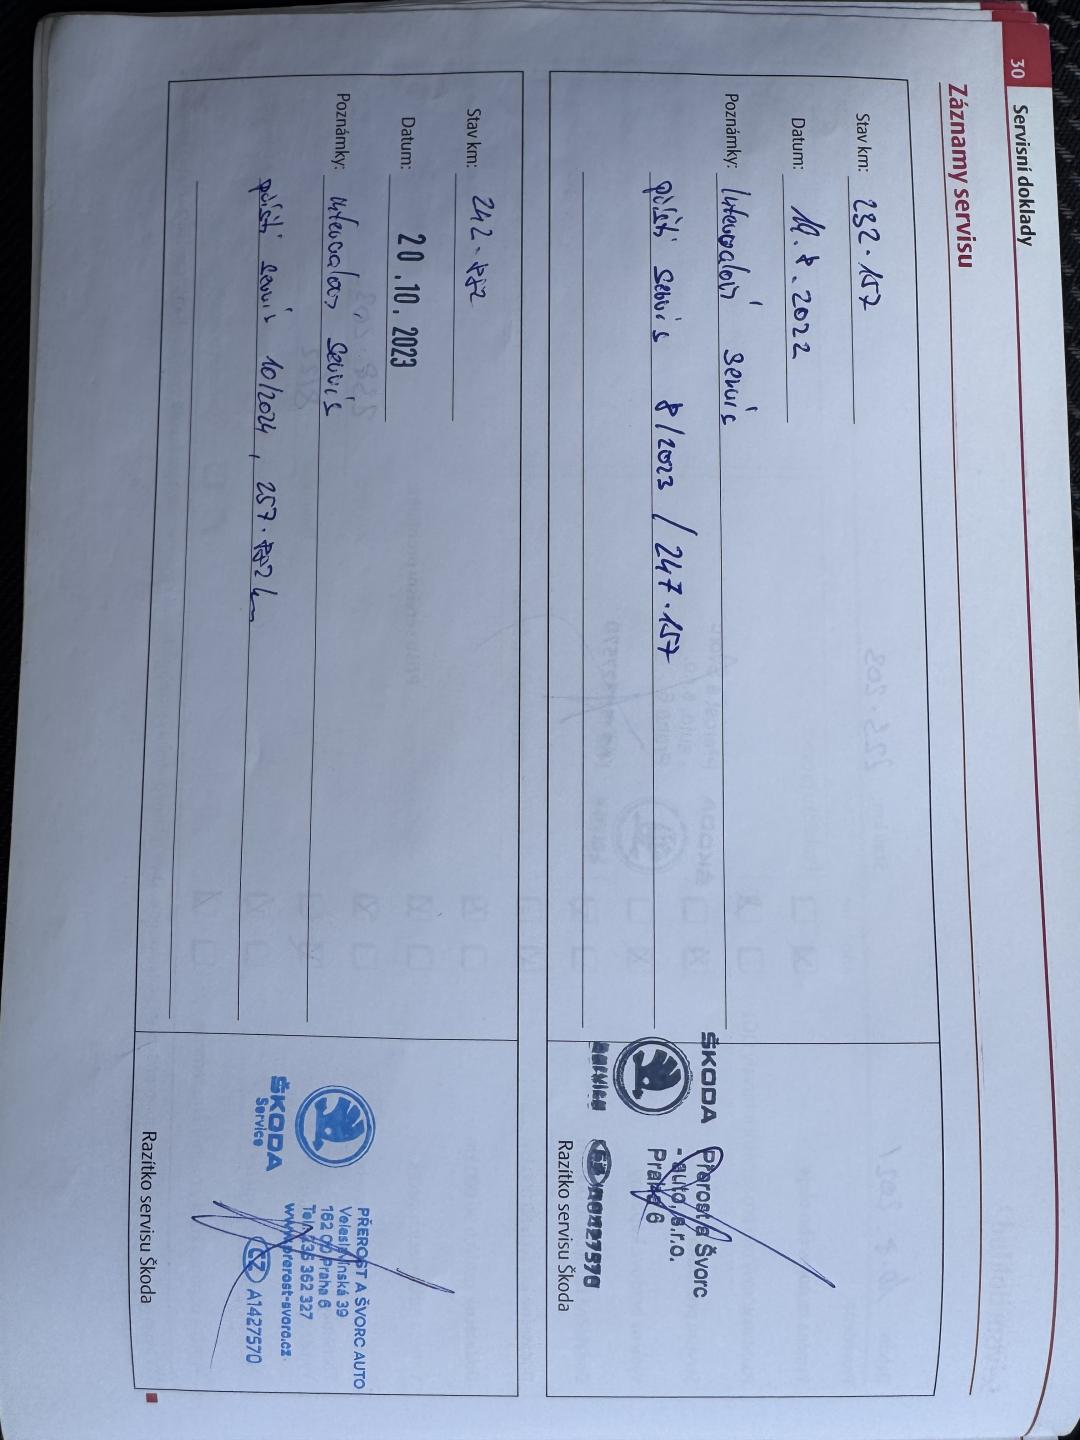 30 Servisní doklady
Záznamy servisu
Stav km: 232.157
Datum: 2022
Poznámky: Intervalový servis
příští servis 8/2023 / 247.157
ŠKODA
Service
Přerost a Švorc
- auto, s.r.o.
Praha 6
Razítko servisu Škoda
Stav km: 242.882
Datum: 20.10.2023
Poznámky: Intervalový servis
příští servis 10/2024, 257.882 km
ŠKODA
Service
PŘEROST A ŠVORC AUTO
Veleslavínská 39
162 00 Praha 6
Tel.: 235 362 327
www.prerost-svorc.cz
CZ A1427570
Razítko servisu Škoda